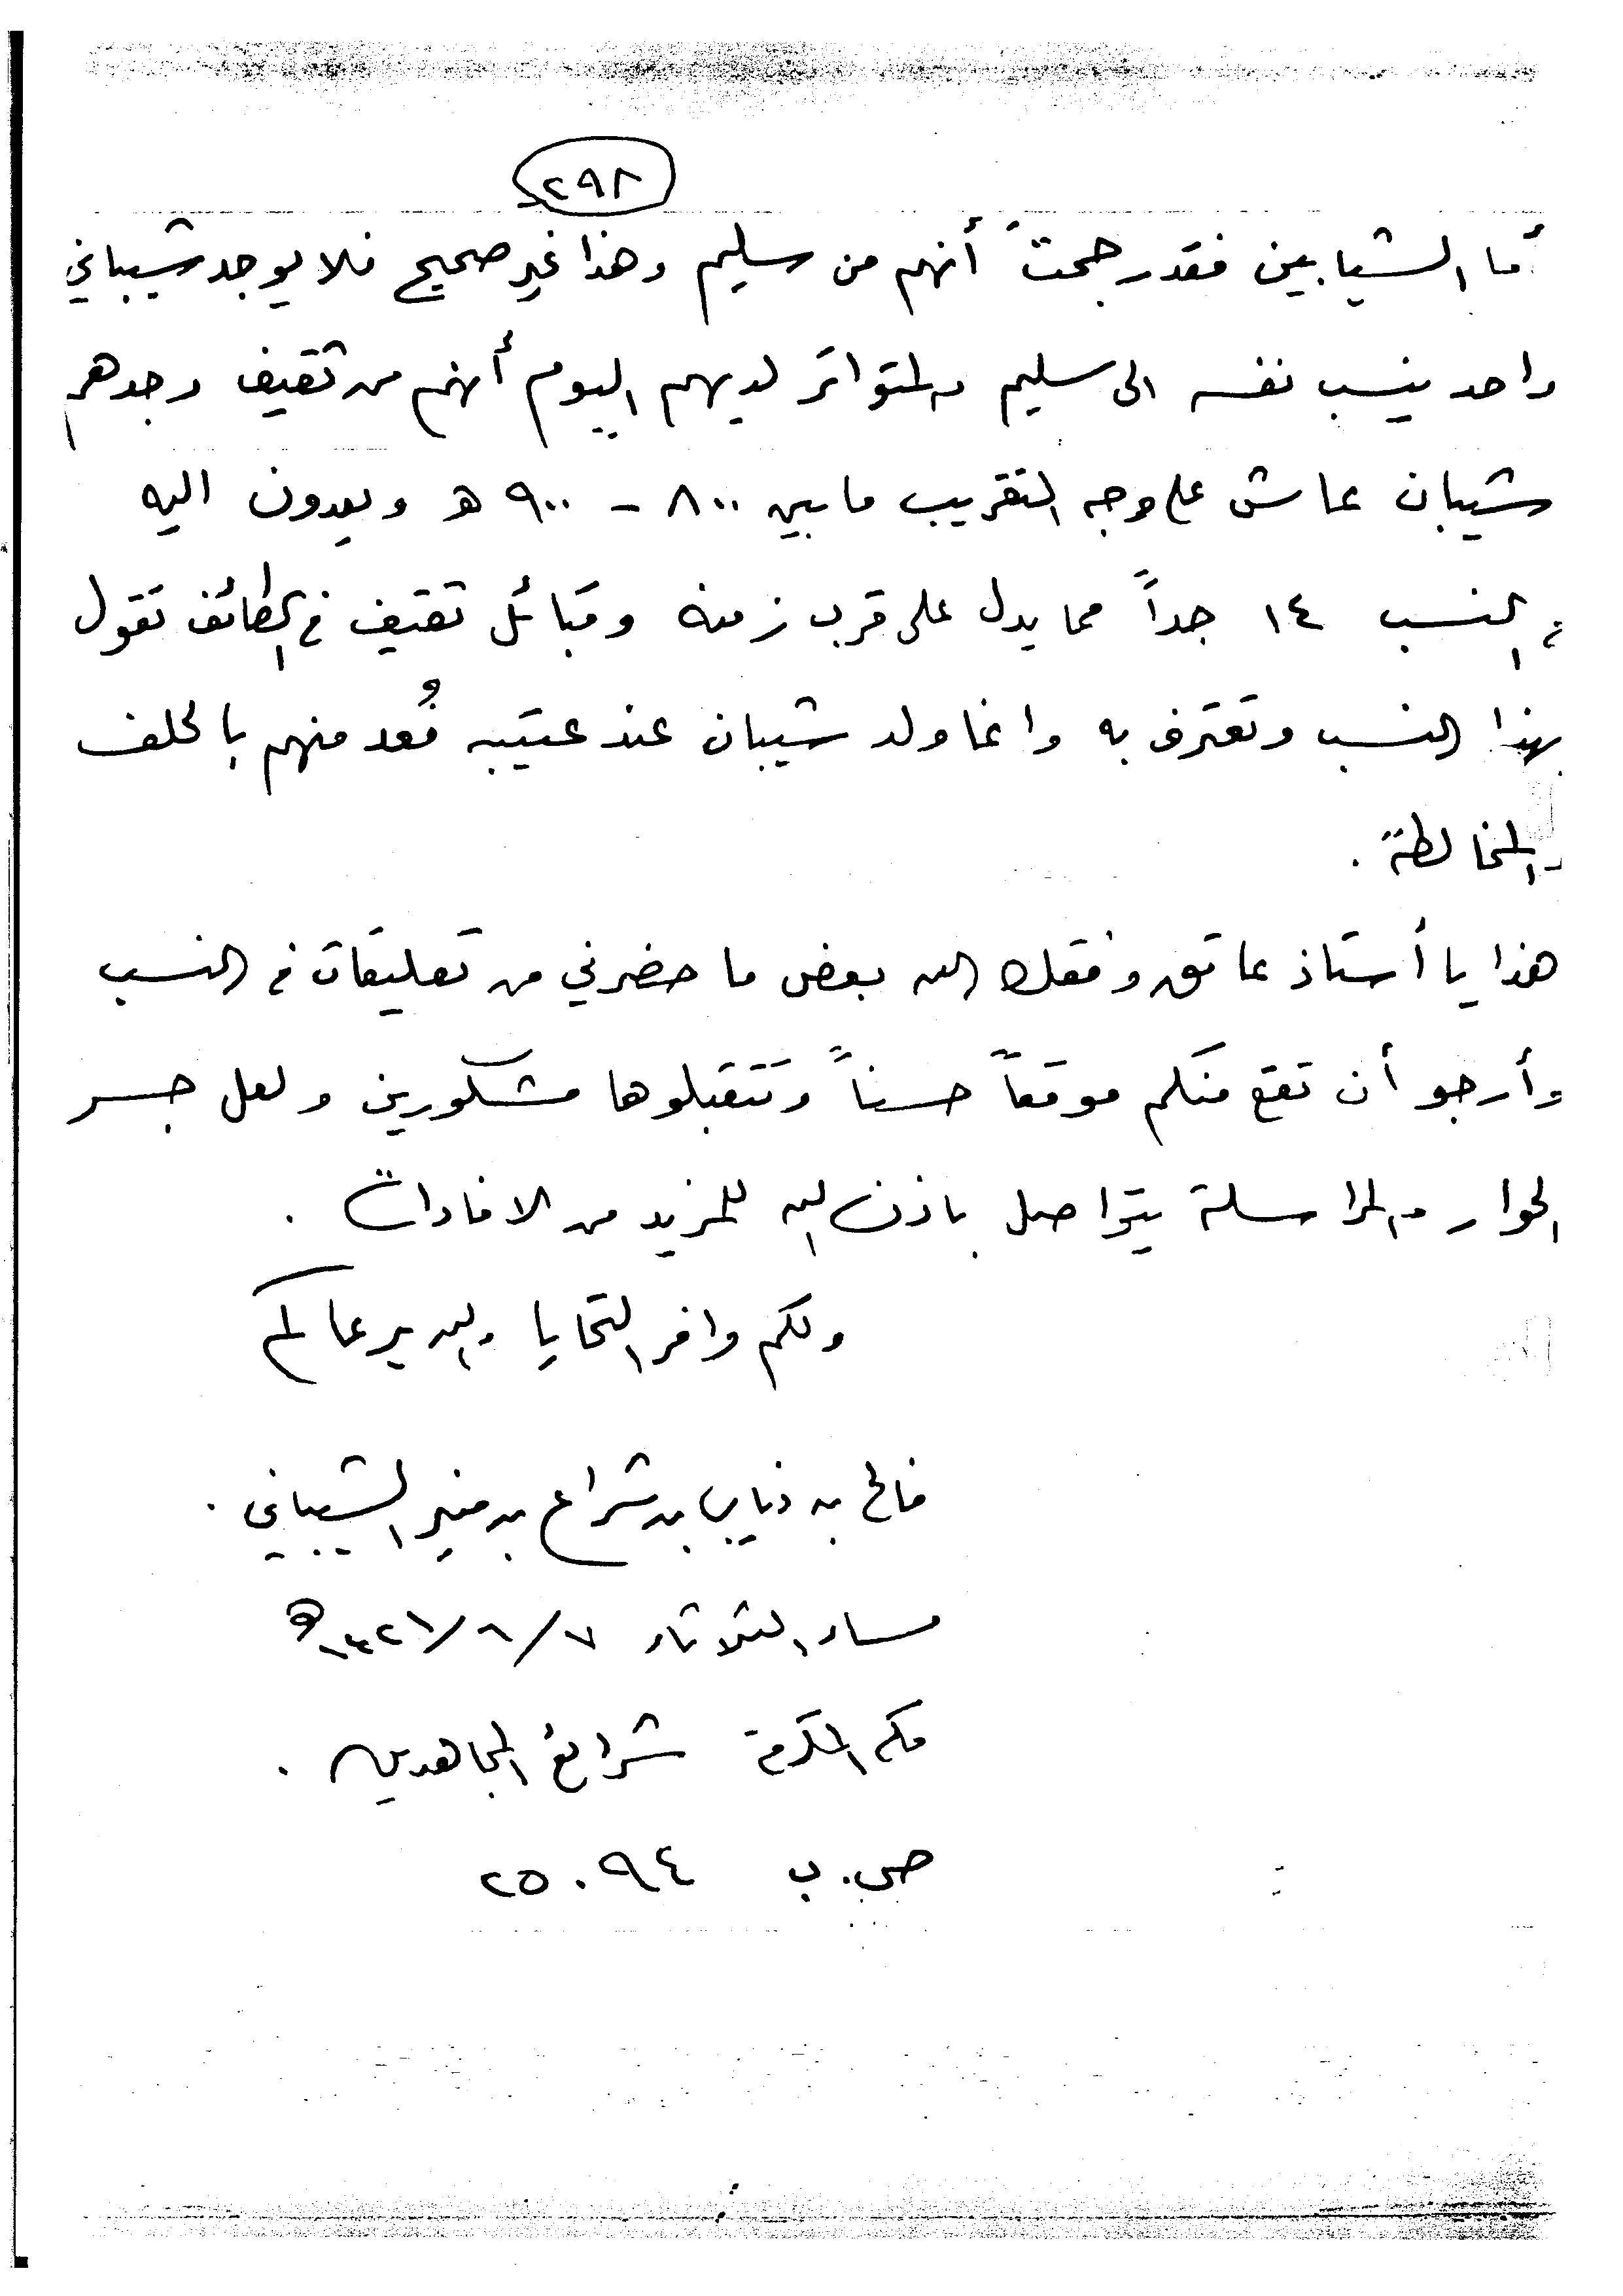 ٢٩٨
أما الشيابين فقد رجحتَ أنهم من سليم وهذا غير صحيح فلا يوجد شيباني
واحد ينسب نفسه الى سليم والمتواتر لديهم اليوم أنهم من ثقيف وجدهم
شيبان عاش على وجه التقريب ما بين ٨٠٠ - ٩٠٠ هـ ويعدون اليه
في النسب ١٤ جداً مما يدل على قرب زمنه وقبائل ثقيف في الطائف تقول
بهذا النسب وتعترف به وانما ولد شيبان عند عتيبه فعُد منهم بالحلف
والمخالطة .
هذا يا أستاذ عاتق وفقك الله بعض ما حضرني من تعليقات في النسب
وأرجو أن تقع منكم موقعاً حسناً وتتقبلوها مشكورين ولعل جسر
الحوار والمراسلة يتواصل باذن الله للمزيد من الافادات .
ولكم وافر التحايا والله يرعاكم
فالح بن ذياب بن شراع بن منير الشيباني .
مساء الثلاثاء ٧/٨/١٤٢١هـ
مكه المكرمة شرائع المجاهدين .
ص.ب ٢٥٠٩٤